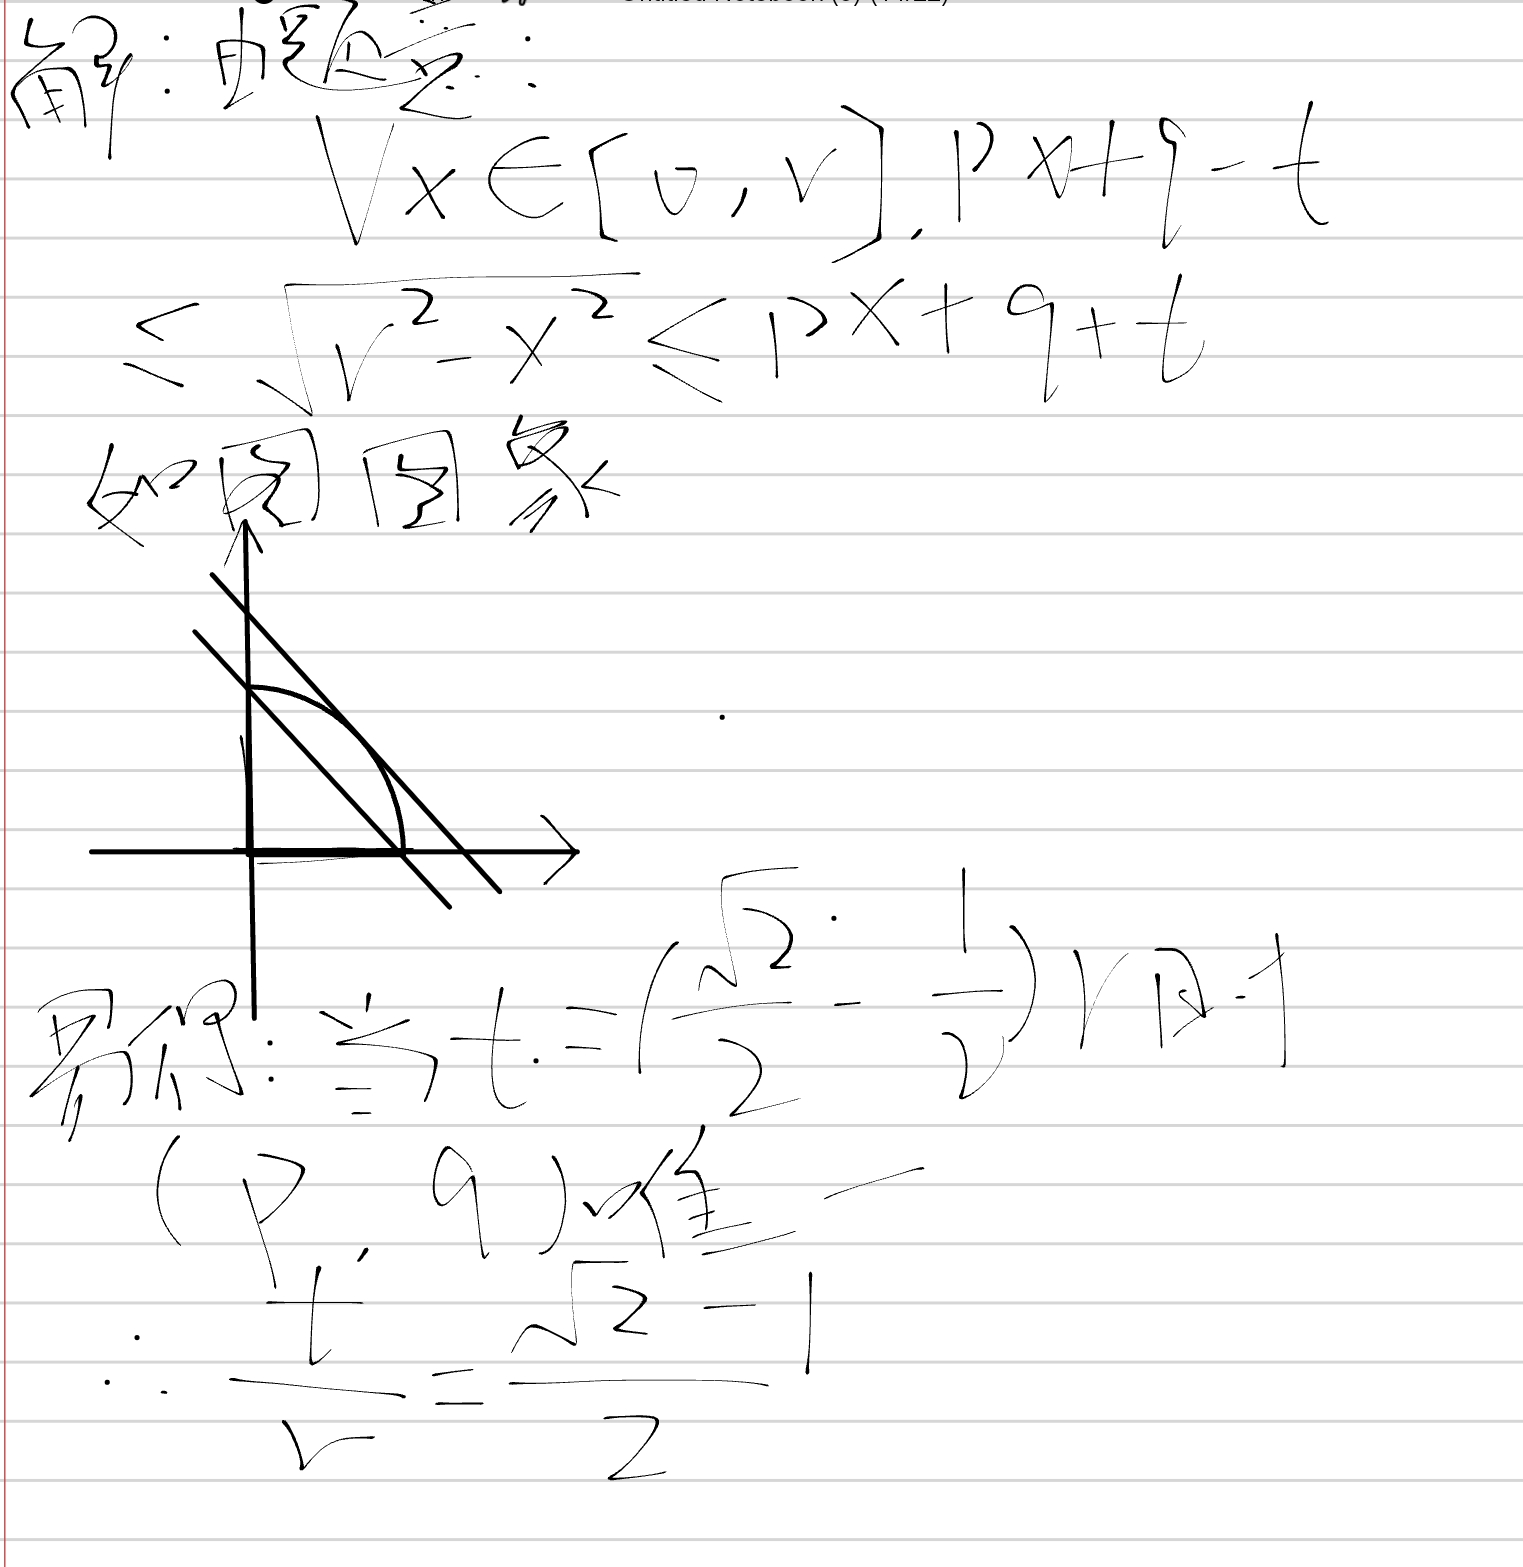 解：由题意：
∀x∈[0,r],px+q-t
≤√(r²-x²)≤px+q+t
如图图象
易得：当t=(√2/2-1/2)r时
(p,q)唯一
∴t/r=(√2-1)/2